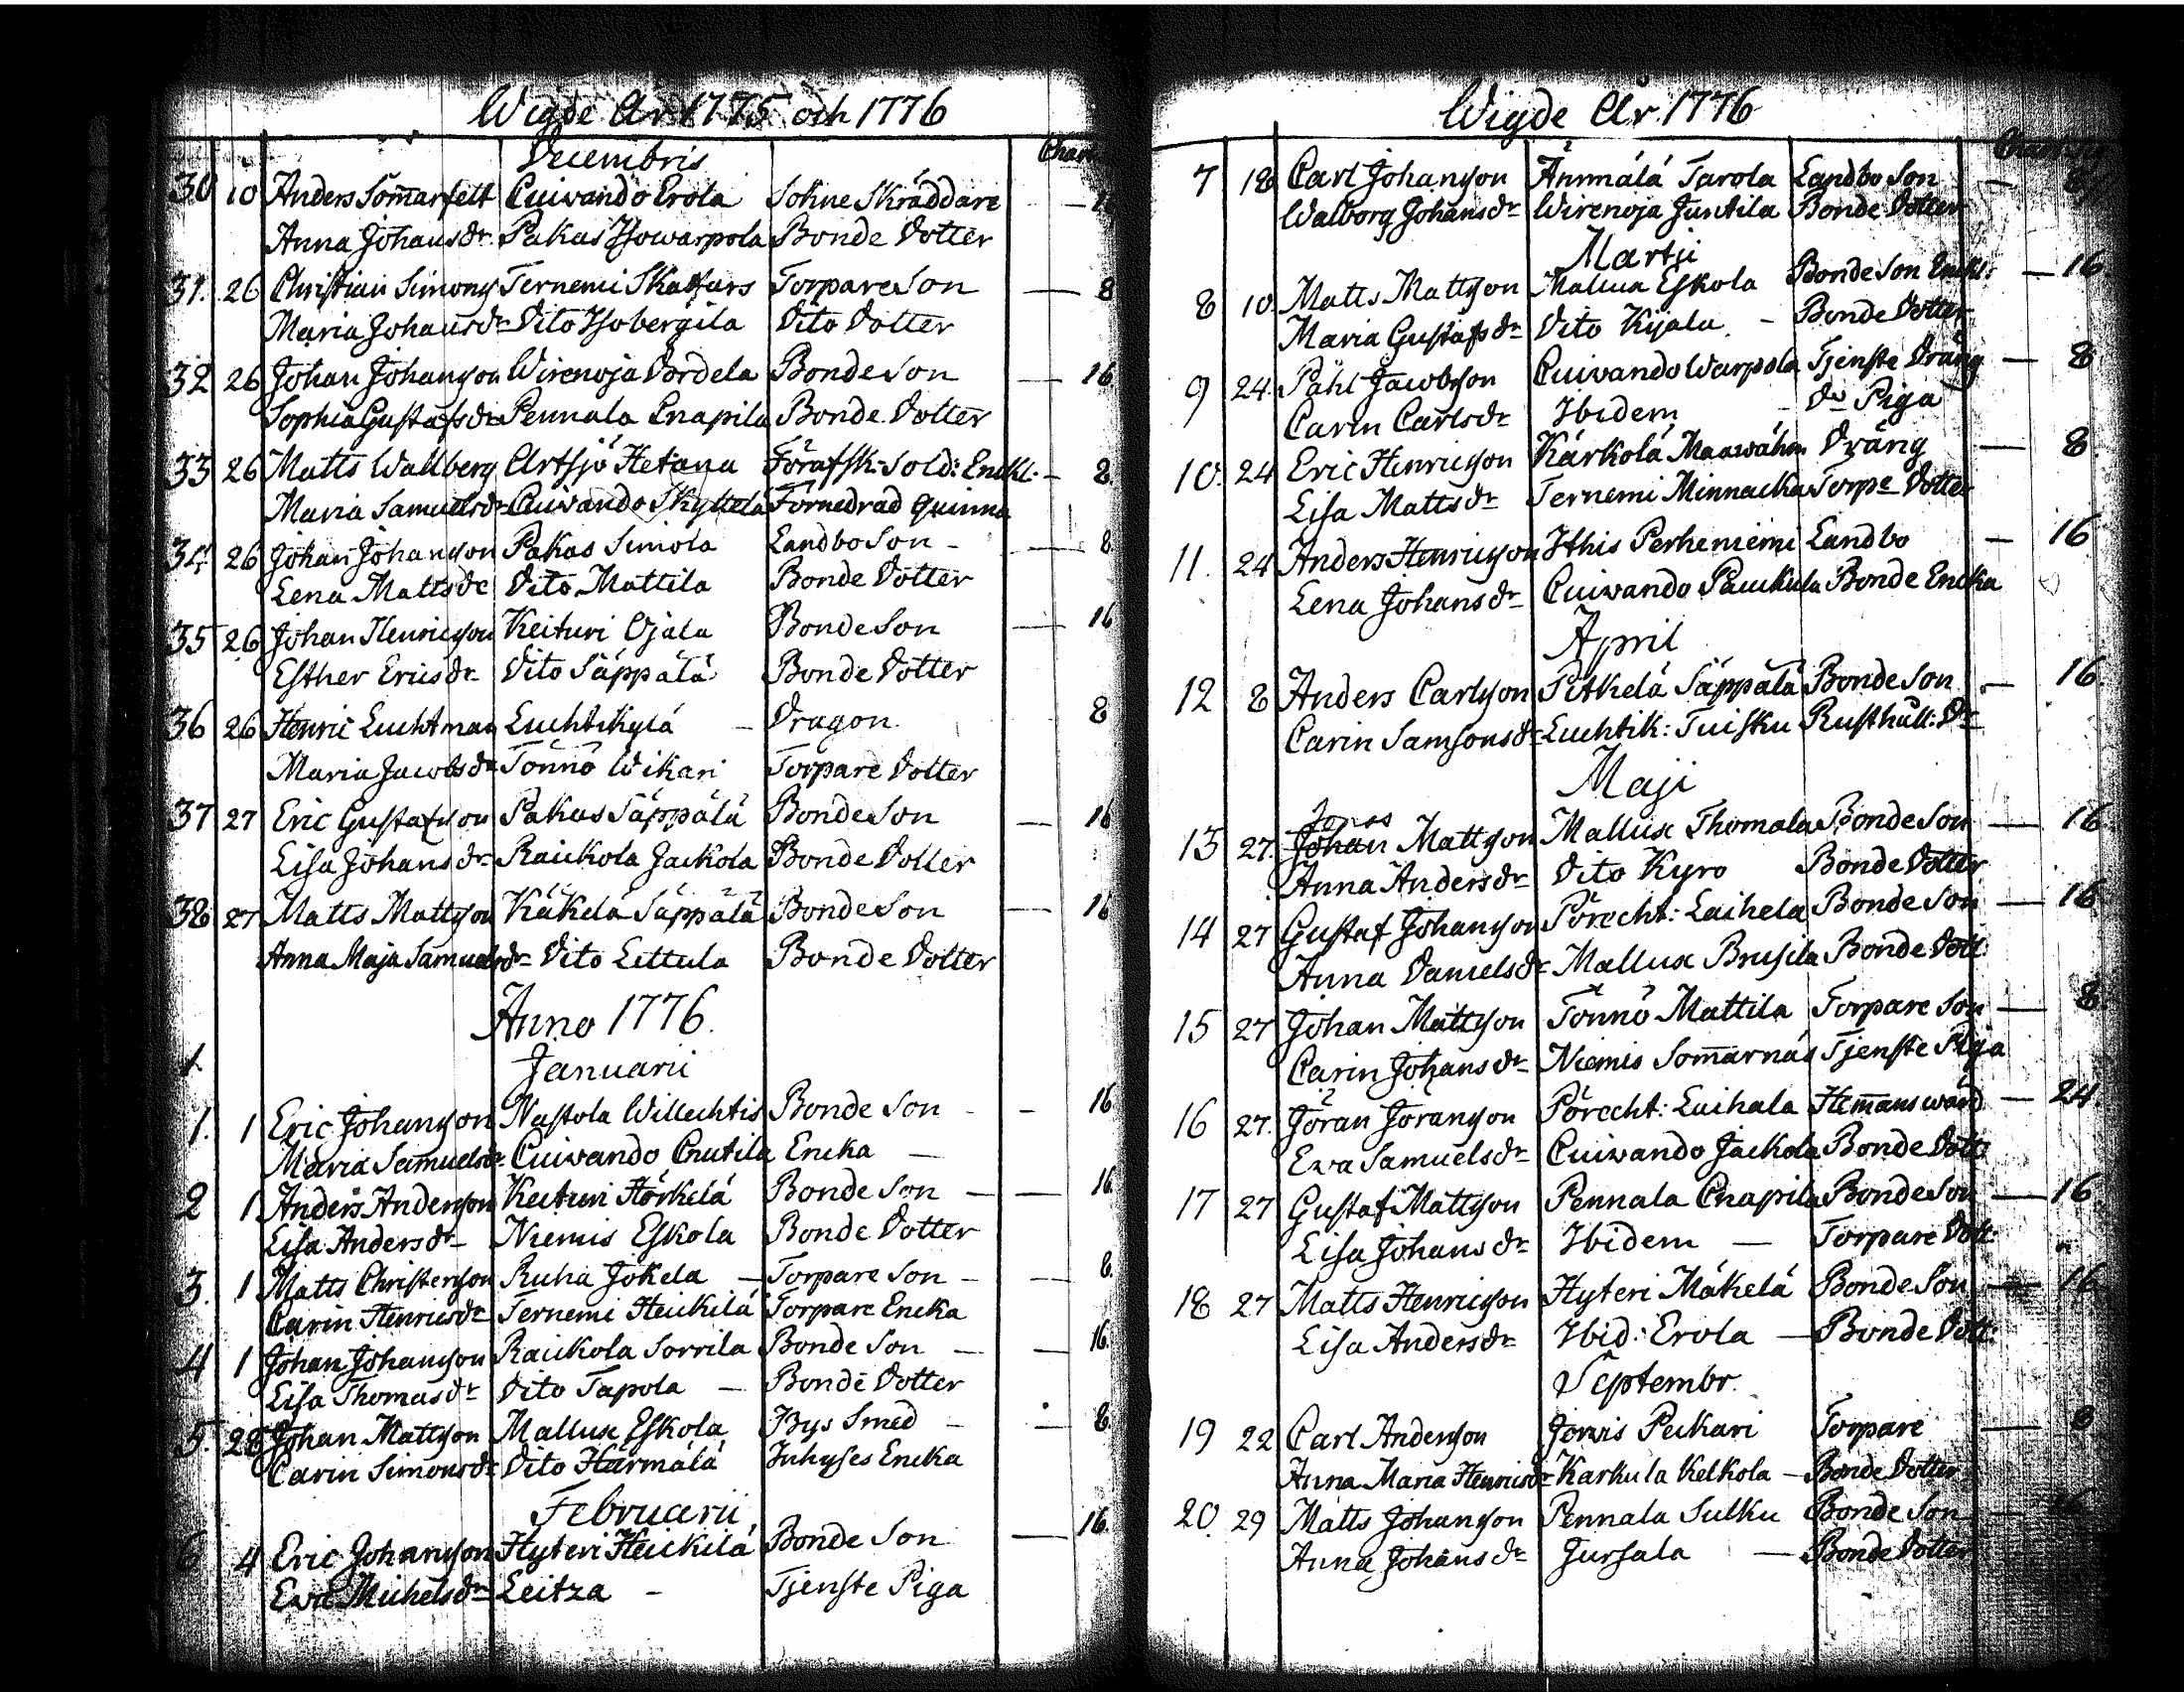 Wigde År 1775 och 1776
Decembris
30 10 Anders Som̄arfelt Cuivando Erola Sokne Skräddare
Anna Johansdr Pakas Isowarpola Bonde Dotter
31. 26 Christian Simons Ternemi Torpare Son — 8
Maria Johansdr Dito Isobergila Dito Dotter
32 26 Johan Johansson Wirenoja Dördela Bonde Son — 16
Sophia Gustafsdr Pennala Cnapila Bonde Dotter
33 26 Matts Wallberg Artsjö Hetana Förafsk: Sold: Enkl: — 8.
Maria Samuelsdr Cuivando Skyttelä Förnedrad Quinna
34 26 Johan Johansson Pakas Simola Landbo Son — 8
Lena Mattsdr Dito Mattila Bonde Dotter
35 26 Johan Henricsson Keituri Ojala Bonde Son — 16
Esther Ericsdr Dito Säppälä Bonde Dotter
36 26 Henric Luchtman Luchtikylä — Dragon — 8
Maria Jacobsdr Tönnö Wikari Torpare Dotter
37 27 Eric Gustafsson Pakas Säppälä Bonde Son — 16
Lisa Johansdr Raickola Jackola Bonde Dotter
38 27 Matts Mattsson Käkelä Säppälä Bonde Son — 16
Anna Maja Samuelsdr Dito Lettula Bonde Dotter
Anno 1776.
1.
Januarii
1. 1 Eric Johansson Nastola Willechtis Bonde Son — 16
Maria Samuelsdr Cuivando Cnutila Encka —
2 1 Anders Andersson Keituri Hörkelä Bonde Son — 16
Lisa Andersdr Niemis Eskola Bonde Dotter
3. 1 Matts Christersson Ruha Jokela — Torpare Son — 8.
Carin Henricsdr Ternemi Heickilä Torpare Encka
4 1 Johan Johansson Raickola Sorrila Bonde Son — 16.
Lisa Thomasdr Dito Tapola — Bonde Dotter
5. 28 Johan Mattsson Mallux Eskola Bys Smed — 8.
Carin Simonsdr Dito Härmälä Inhyses Encka
Februarii
6 4 Eric Johansson Hyteri Heickilä Bonde Son — 16.
Eva Michelsdr Leitza — Tjenste Piga
Wigde År 1776
7 18 Carl Johansson Änmälä Tarola Landbo Son —
Walborg Johansdr Wirenoja Juntila Bonde Dotter
Martji
8 10. Matts Mattsson Mallux Eskola Bonde Son Enkl: — 16
Maria Gustafsdr Dito Kijala — Bonde Dotter
9 24. Påhl Jacobsson Cuivando Warpola Tjenste Dräng — 8
Carin Carlsdr Ibidem — Do Piga
10. 24 Eric Henricsson Kärkölä Maawähn Dräng — 8.
Lisa Mattsdr Ternemi Minnacka Torpe Dotter
11. 24 Anders Henricsson Ithis Perheniemi Landbo — 16
Lena Johansdr Cuivando Pauckula Bonde Encka
April
12 8 Anders Carlsson Pitkelä Säppälä Bonde Son — 16.
Carin Samsonsdr Luchtik: Tuisku Rusthåll: Dr
Maji
Jonas
13 27. Johan Mattsson Mallux Thomala Bonde Son — 16
Anna Andersdr Dito Kyro Bonde Dotter
14 27 Gustaf Johansson Pörecht: Laihela Bonde Son — 16
Anna Danielsdr Mallux Brusila Bonde Dott:
15 27 Johan Mattsson Tönnö Mattila Torpare Son — 8.
Carin Johansdr Niemis Som̄arnäs Tjenste Piga
16 27. Jöran Jöransson Pörecht: Laihala Hem̄answärd — 24
Eva Samuelsdr Cuivando Jackola Bonde Dott:
17 27 Gustaf Mattsson Pennala Cnapila Bonde Son — 16
Lisa Johansdr Ibidem — Torpare Dott:
18 27 Matts Henricsson Hyteri Mäkelä Bonde Son — 16
Lisa Andersdr Ibid: Erola — Bonde Dott:
Septembr.
19 22 Carl Andersson Jerwis Peckari Torpare — 8
Anna Maria Henricsdr Karkula Kelkola — Bonde Dotter
20. 29 Matts Johansson Pennala Sulku Bonde Son — 16
Anna Johansdr Jursala — Bonde Dotter